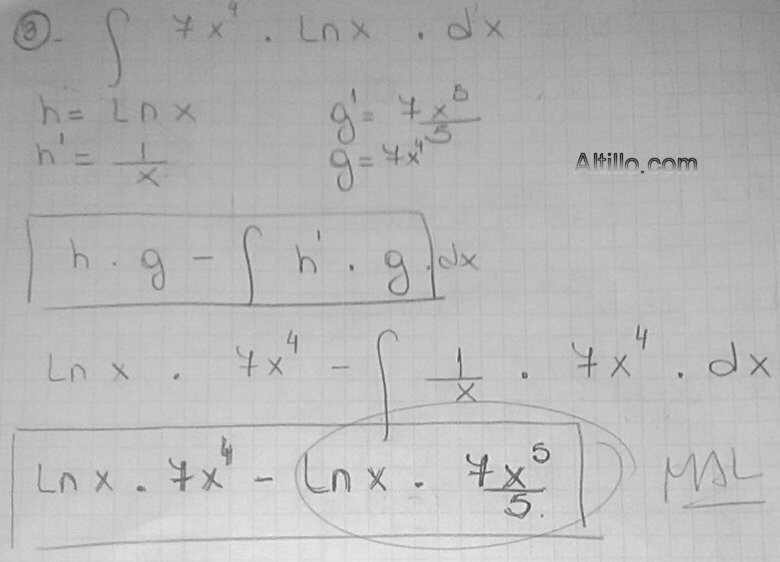 ③- ∫ 7x⁴ . Lnx . dx
h = Ln x g' = 7x⁵/5
h' = 1/x g = 7x⁴
Altillo.com
h . g - ∫ h' . g . dx
Ln x . 7x⁴ - ∫ 1/x . 7x⁴ . dx
Ln x . 7x⁴ - Ln x . 7x⁵/5. MAL